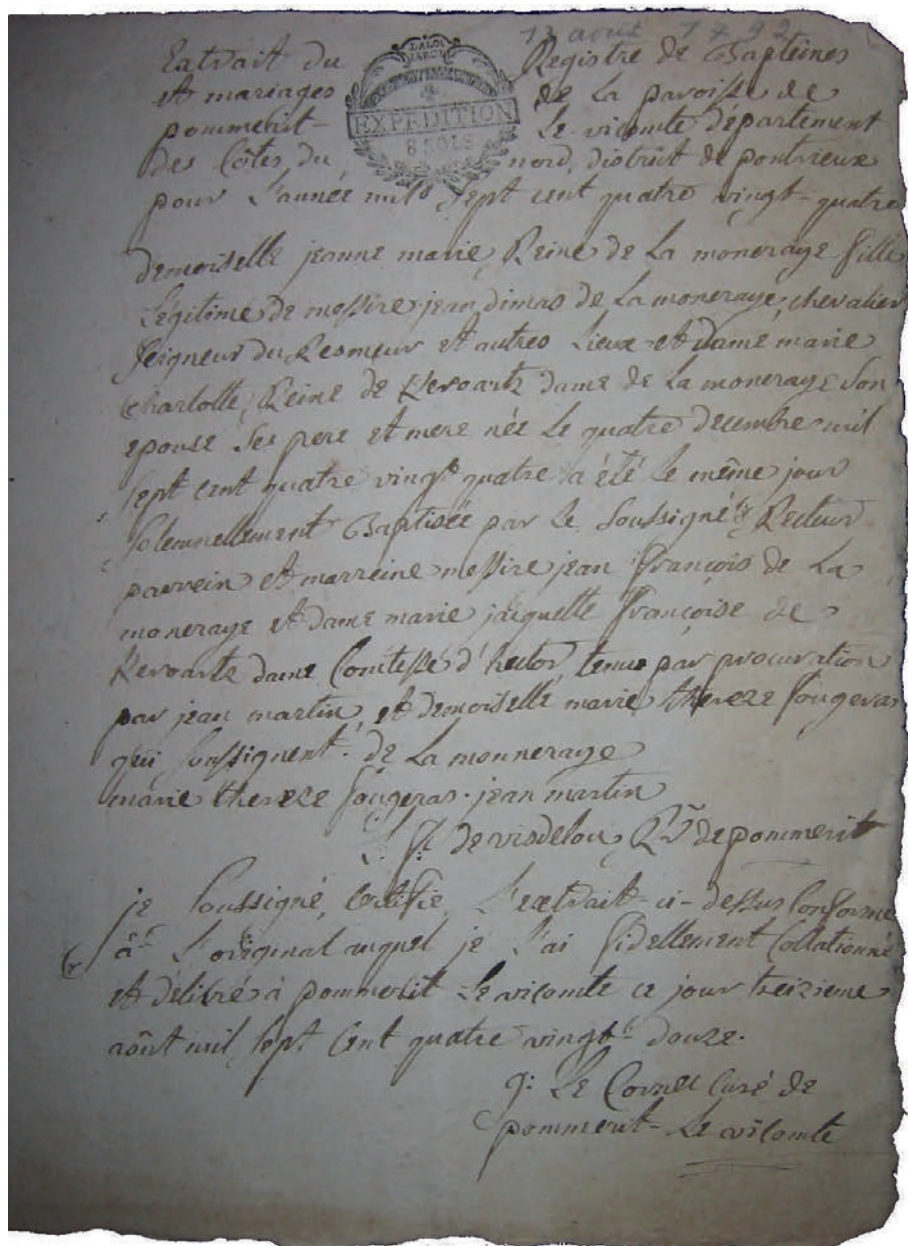 13 août 1792
Extrait du Registre de Baptêmes
et mariages de La paroisse de
pommerit- Le-vicomte département
des Côtes du nord, district de pontrieux
pour L'année mil Sept cent quatre vingt-quatre
LA LOI
EXPEDITION
8 SOLS
demoiselle jeanne marie Reine de La moneraye fille
Légitime de messire jean dimas de La moneraye, chevalier
Seigneur du Resmeur et autres Lieux et dame marie
Charlotte Reine de Kervoartz dame de La moneraye Son
epouse Ses pere et mere née Le quatre decembre mil
Sept cent quatre vingt quatre a été Le même jour
Solemnellement Baptisée par Le Soussigné Recteur
parrein et marreine messire jean François de La
moneraye et dame marie jacquette Françoise de
Kervoartz dame Comtesse d'hector, tenue par procuration
par jean martin et demoiselle marie thereze fougeras
qui Soussignent. de La monneraye
marie thereze fougeras. jean martin
de visdelou, Rr de pommerit
je Soussigné, Certifie L'extrait ci-dessus Conforme
à L'original auquel je L'ai fidellement Collationné
et délivré à pommerit Le vicomte ce jour treizieme
août mil Sept Cent quatre vingt-douze.
g: Le Cornec Curé de
pommerit-Le vicomte